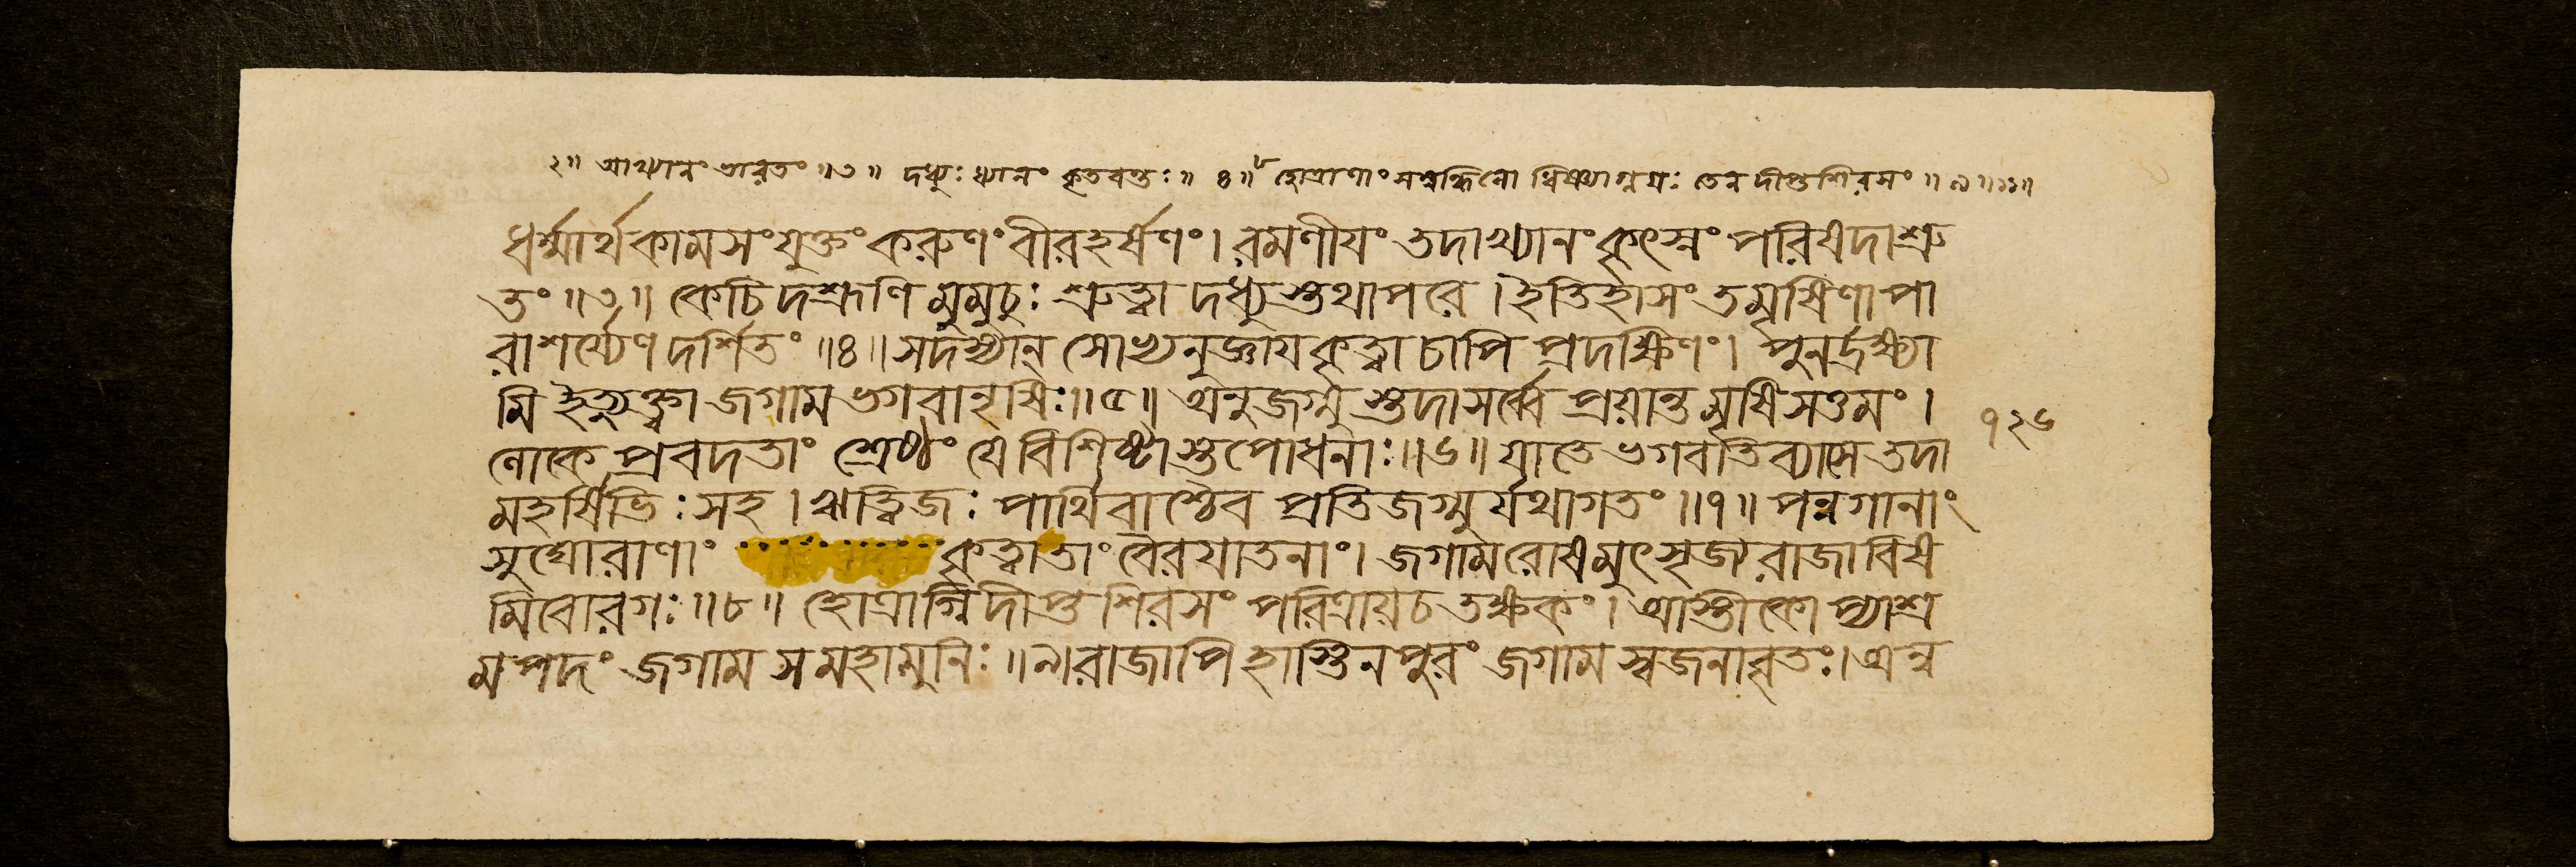 ২॥ আখ্যানং ভারতং ॥৩॥ দধ্যুঃ ধ্যানং কৃতবন্তঃ ॥ ৪॥ হোত্রাণাং ধিষ্ণ্যাগ্নয়ঃ তেন দীপ্তশিরসং ॥ ৯॥
ধর্ম্মার্থকামসংযুক্তং করুণং বীরহর্ষণং। রমণীযং তদাখ্যানং কৃৎস্নং পরিষদাশ্রু
তং ॥৩॥ কেচিদশ্রূণি মুমুচুঃ শ্রুত্বা দধ্যুস্তথাপরে । ইতিহাসং তমৃষিণা পা
রাশর্য্যেণ দর্শিতং ॥৪॥ সদস্যান্ সোভ্যনুজ্ঞায কৃত্বা চাপি প্রদক্ষিণং। পুনর্দ্রক্ষ্যা
মি ইত্যুক্ত্বা জগাম ভগবানৃষিঃ॥৫॥ অনুজগ্মুস্তদা সর্ব্বে প্রয়ান্তমৃষিসত্তমং ।
লোকে প্রবদতাং শ্রেষ্ঠং যে বিশিষ্টাস্তপোধনাঃ॥৬॥ যাতে ভগবতি ব্যাসে তদা
মহর্ষিভিঃ সহ । ঋত্বিজঃ পার্থিবাশ্চৈব প্রতিজগ্মুর্যথাগতং ॥৭॥ পন্নগানাং
সুঘোরাণাং কৃত্বা তাং বৈরযাতনাং। জগাম রোষমুৎসৃজ্য রাজা বিষ
মিবোরগঃ ॥৮॥ হোত্রাগ্নিদীপ্তশিরসং পরিত্রায় চ তক্ষকং। আস্তীকোপ্যাশ্র
মপদং জগাম স মহামুনিঃ ॥৯। রাজাপি হাস্তিনপুরং জগাম স্বজনাবৃতঃ। অন্ব
১২৬